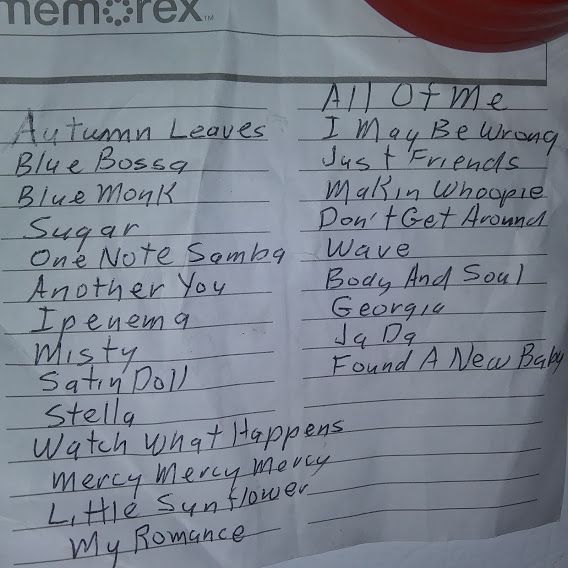 memorex™
Autumn Leaves
Blue Bossa
Blue Monk
Sugar
One Note Samba
Another You
Ipenema
Misty
Satin Doll
Stella
Watch What Happens
Mercy Mercy Mercy
Little Sunflower
My Romance
All Of Me
I May Be Wrong
Just Friends
Makin Whoopie
Don't Get Around
Wave
Body And Soul
Georgia
Ja Da
Found A New Baby